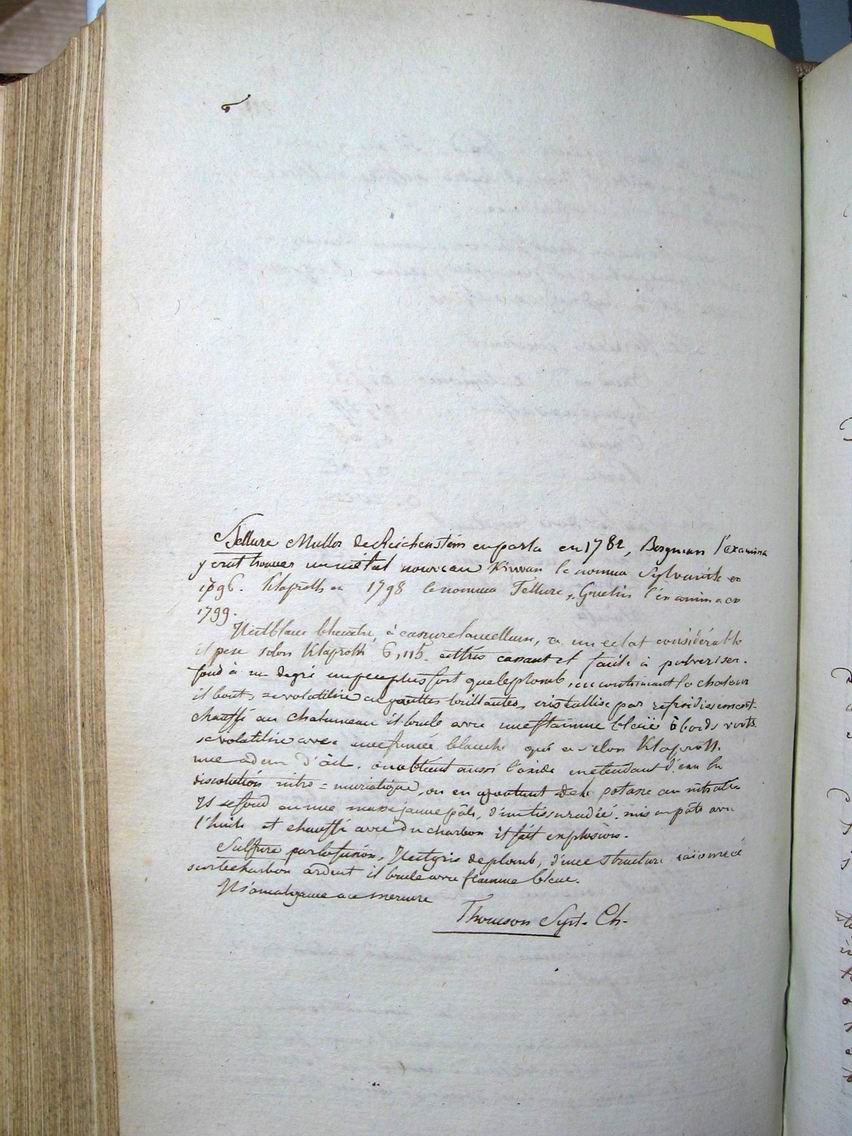 Tellure Muller de Reichenstein en parla en 1782, Bergmann l'examina
y crut trouver un métal nouveau Kirwan le nomma Sylvanite en
1796. Klaproth en 1798 le nomma Tellure, Gmelin l'examina en
1799.
Il est blanc bleuatre, à cassure lamelleuse, a un eclat considérable
il pese selon Klaproth 6,115. est très cassant et facile à pulveriser.
fond à un degré un peu plus fort que le plomb, en continuant la chaleur
il bout, se volatilise en gouttes brillantes, cristallise par refroidissement.
chauffé au chalumeau il brule avec une flamme bleue à bords verts
se volatilise avec une fumée blanche qui a selon Klaproth
une odeur d'. on obtient aussi l'oxide en etendant d'eau la
dissolution nitro = muriatique, ou en ajoutant de la potasse au nitrate
Il se fond en une masse jaune pâle, d'un tissu radié, mis en pâte avec
l'huile et chauffé avec du charbon il fait explosion.
Sulfure par la fusion, Il est gris de plomb, d'une structure raionnée
sur le charbon ardent il brule avec flamme bleue.
Il s'amalgame au mercure
Thomson Syst. Ch.